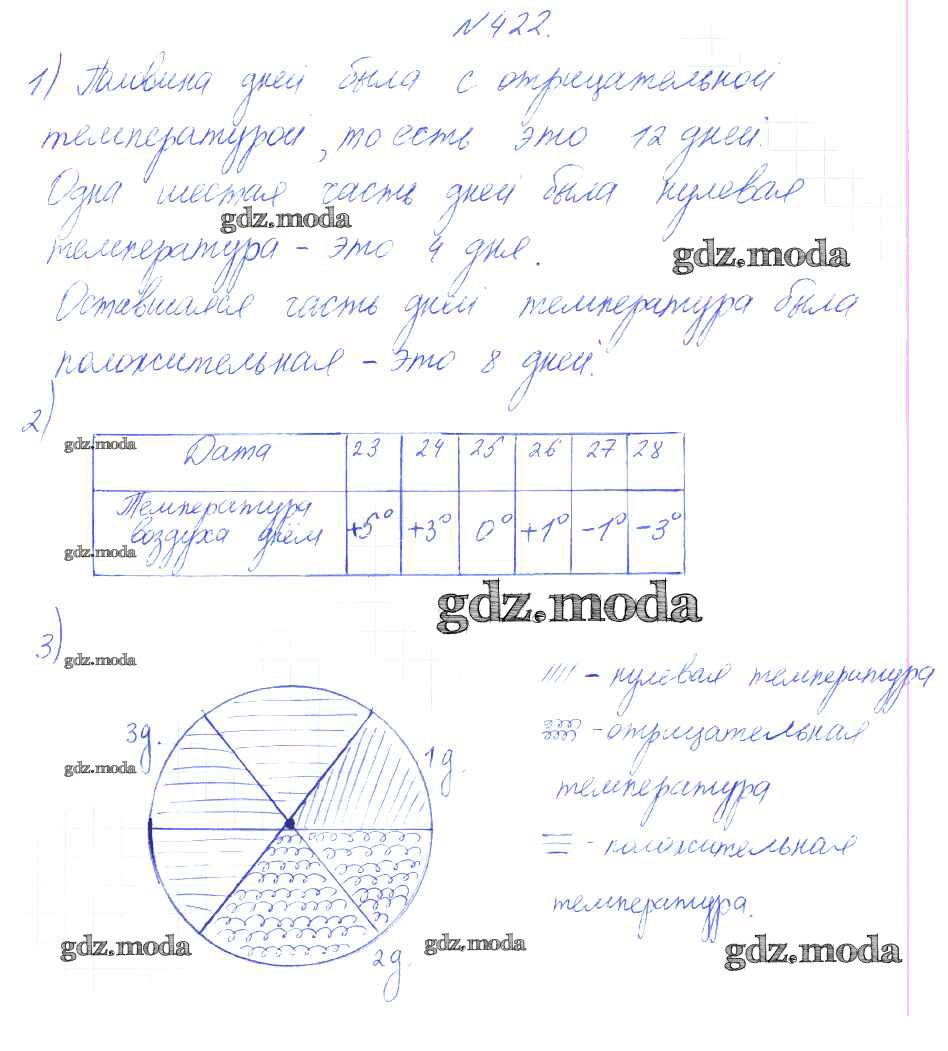 №422.
1) Половина дней была с отрицательной
температурой, то есть это 12 дней.
Одна шестая часть дней была нулевая
gdz.moda
температура – это 4 дня.
gdz.moda
Оставшаяся часть дней температура была
положительная – это 8 дней.
2)
gdz.moda
Дата 23 24 25 26 27 28
Температура
воздуха днём +5° +3° 0° +1° –1° –3°
gdz.moda
gdz.moda
3)
gdz.moda
//// – нулевая температура
3д.
– отрицательная
1д.
gdz.moda
температура
= – положительная
температура.
gdz.moda
gdz.moda
gdz.moda
2д.